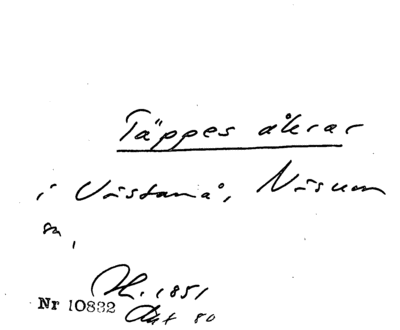 Täppes åkrar
i Västanå, Näsum
sn,
H. 1851
Nr 10832
Akt 80